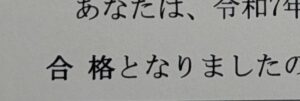 あなたは、令和7年
合 格となりましたの